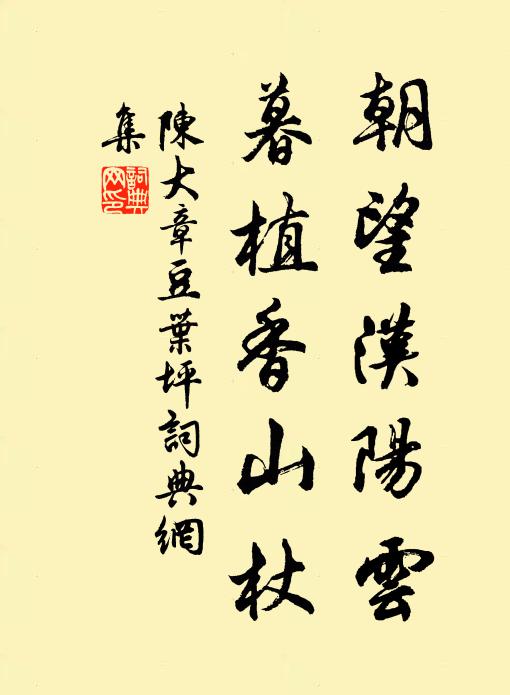 朝望漢陽雲
暮植香山杖
陳大章豆葉坪詞典網
集
詞典網印